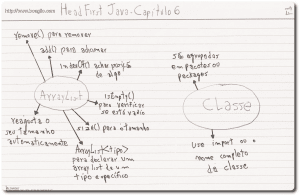 Head First Java - Capítulo 6
remove() para remover
add() para adicionar
indexOf() achar posição
de algo
ArrayList
isEmpty()
para verificar
se está vazio
size() para o tamanho
reajusta o
seu tamanho
automaticamente
ArrayList<tipo>
para declarar um
arraylist de um
tipo específico
são agrupadas
em pacotes ou
packages
Classe
use import ou o
nome completo
da classe